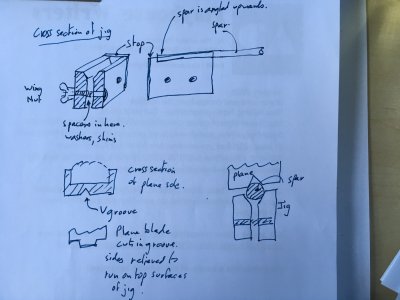 Cross section of jig
spar is angled upwards.
spar
stop
Wing
Nut
spacers in here.
washers, shims
cross section
of plane sole.
V groove
Plane blade
cuts in groove.
sides relieved to
run on top surfaces
of jig.
plane
spar
Jig